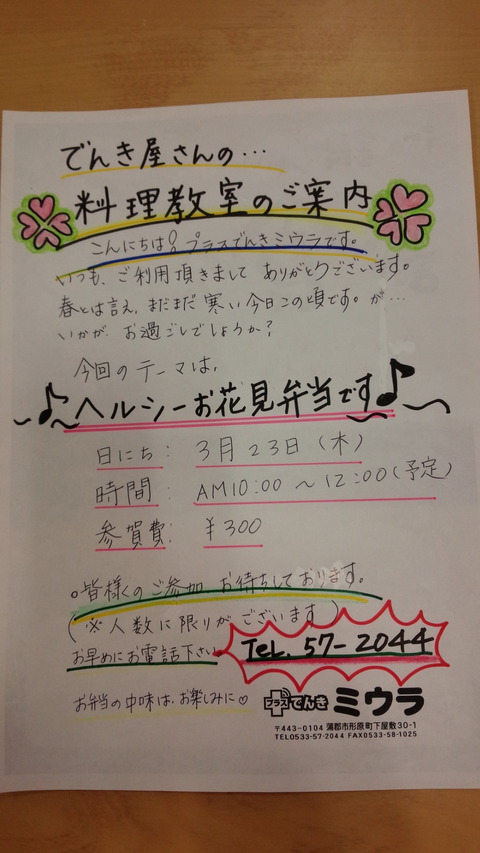 でんき屋さんの…
料理教室のご案内
こんにちは!プラスでんきミウラです。
いつも、ご利用頂きまして ありがとうございます。
春とは言え、まだまだ 寒い今日この頃です。が…
いかが お過ごしでしょうか？
今回のテーマは、
♪〜ヘルシーお花見弁当です♪〜
日にち： 3月23日（木）
時間： AM10:00 〜 12:00（予定）
参賀費： ￥300
○皆様のご参加 お待ちしております。
（※人数に限りがございます）
お早めにお電話下さい
Tel. 57-2044
お弁当の中味は、お楽しみに♡
プラスでんき ミウラ
〒443-0104 蒲郡市形原町下屋敷30-1
TEL0533-57-2044 FAX0533-58-1025